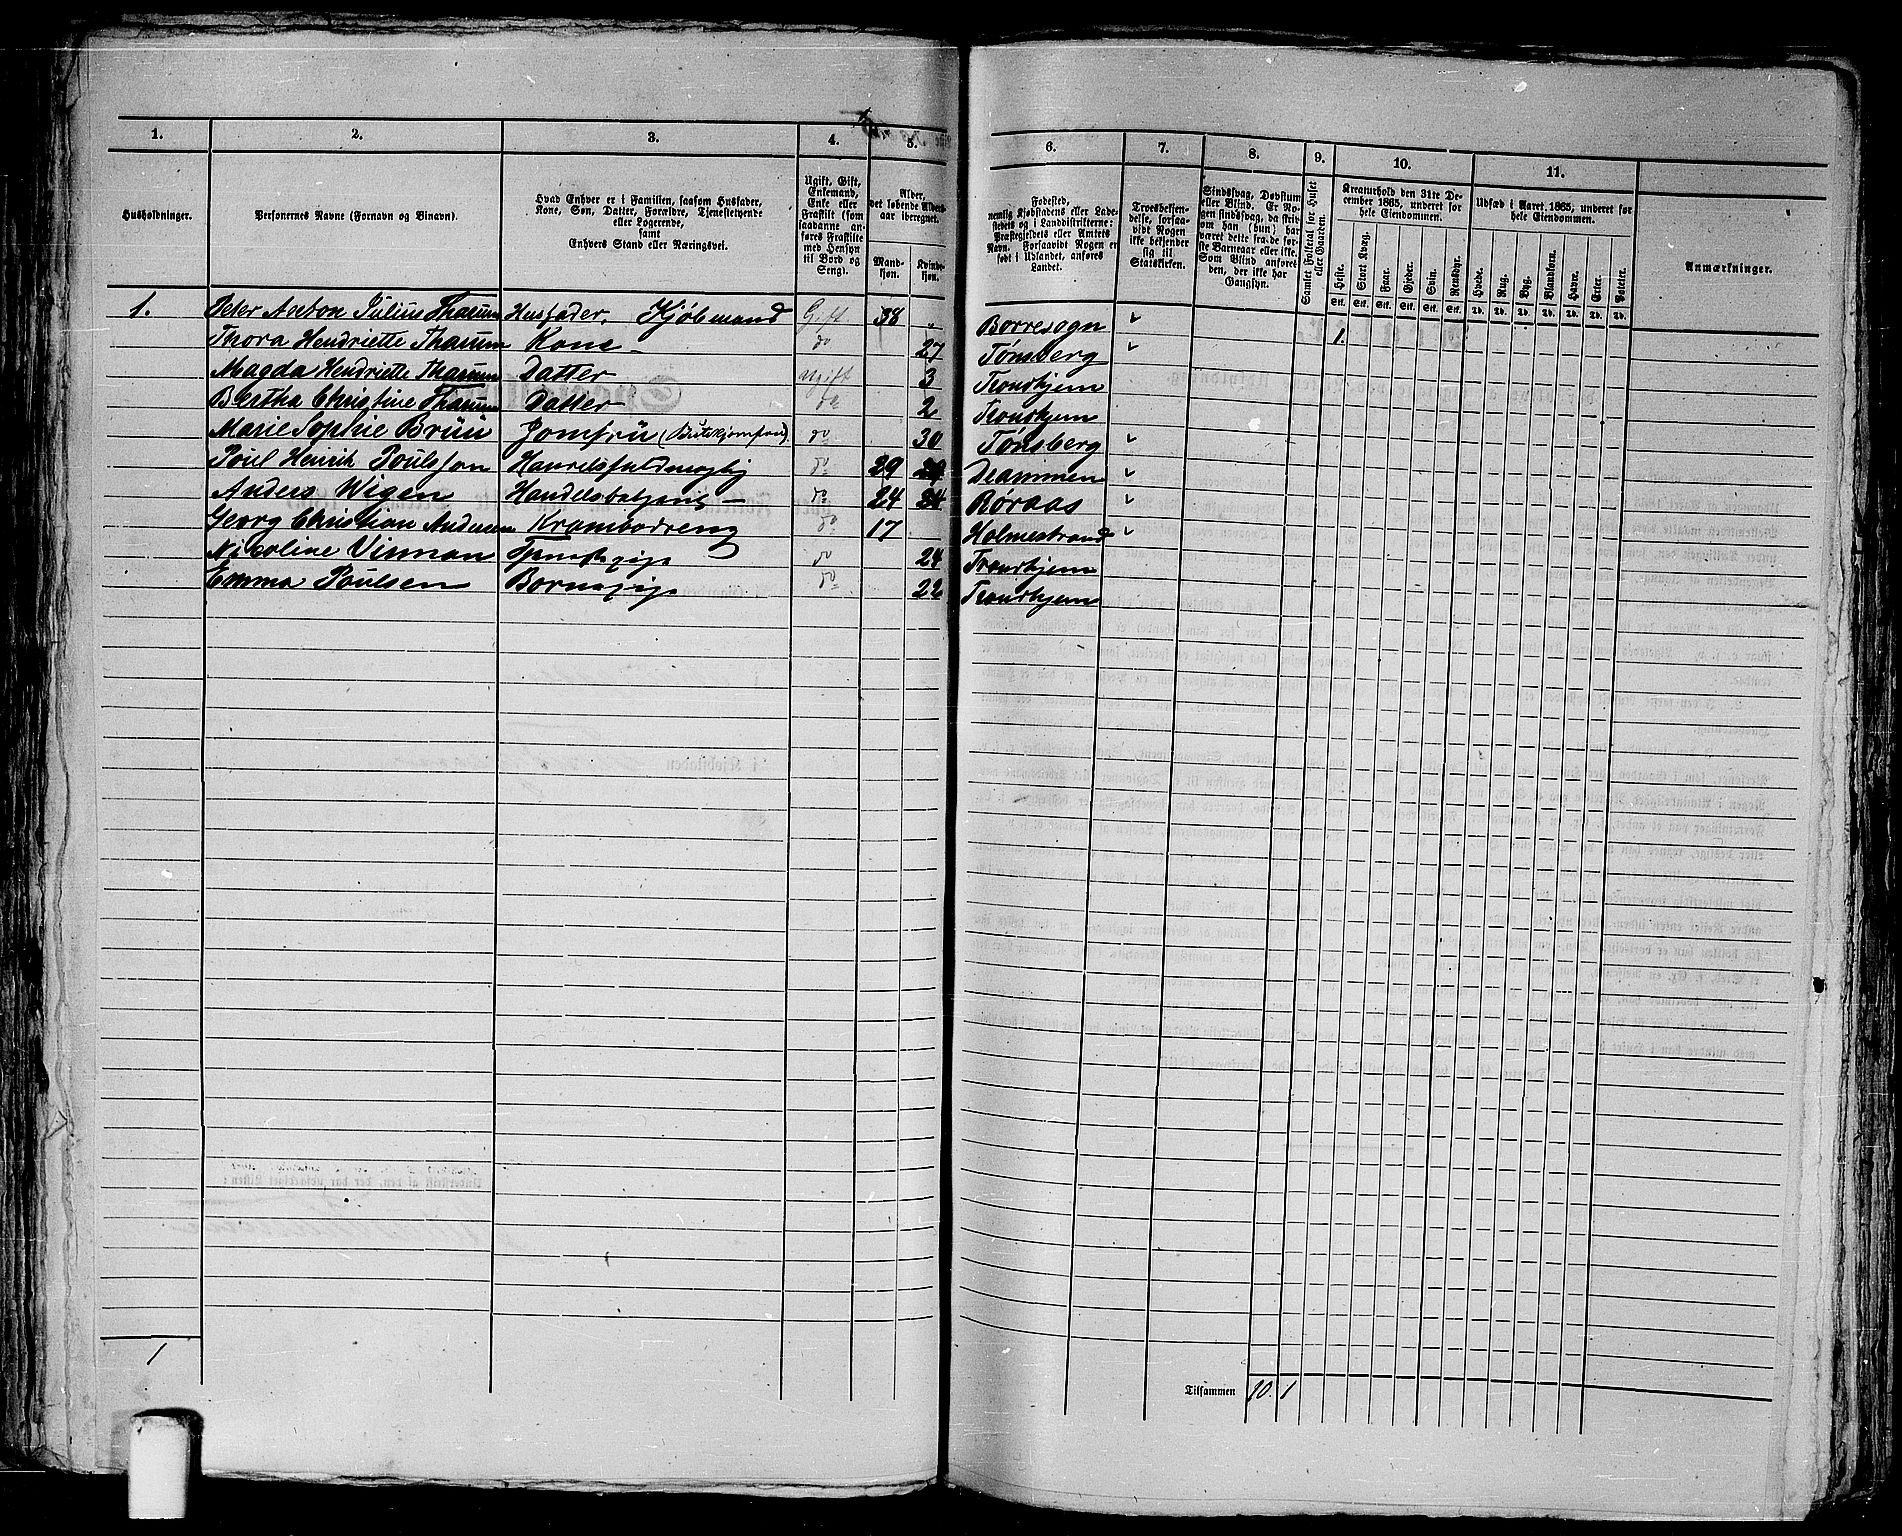 1. 2. 3. 4. 5. 6. 7. 8. 9. 10. 11.
Husholdninger.
Personernes Navne (Fornavn og Binavn).
Hvad Enhver er i Familien, saasom Husfader,
Kone, Søn, Datter, Forældre, Tjenestetyende
eller Logerende,
samt
Enhvers Stand eller Næringsvei.
Ugift, Gift,
Enkemand,
Enke eller
Fraskilt (som
saadanne an-
føres Fraskilte
med Hensyn
til Bord og
Seng).
Alder,
det løbende Alders-
aar iberegnet.
Mand-
kjøn.
Kvinde-
kjøn.
Fødested,
nemlig Kjøbstadens eller Lade-
stedets og i Landdistrikterne:
Præstegjeldets eller Amtets
Navn. Forsaavidt Nogen er
født i Udlandet, anføres
Landet.
Troesbekjen-
delse, forsaa-
vidt Nogen
ikke bekjender
sig til
Statskirken.
Sindssvag, Døvstum
eller Blind. Er No-
gen sindssvag, da skriv
om han (hun) har
været dette fra de før-
ste Barneaar eller ikke.
Som Blind anføres
den, der ikke har
Gangsyn.
Samlet Folketal for Huset
eller Gaarden.
Kreaturhold den 31te De-
cember 1865, underet for
hele Eiendommen.
Heste. Stort Kvæg. Faar. Gjeder. Svin. Rensdyr.
Stk. Stk. Stk. Stk. Stk. Stk.
Udsæd i Aaret 1865, underet for
hele Eiendommen.
Hvede. Rug. Byg. Blandkorn. Havre. Erter. Poteter.
Td. Td. Td. Td. Td. Td. Td.
Anmærkninger.
1. Peter Anton Julius Thaeum Husfader, Kjøbmand Gift 38 " Borresogn " 1.
Thora Henriette Thaeum Kone - do 27 Tønsberg "
Magda Henriette Thaeum Datter Ugift 3 Trondhjem
Bertha Christine Thaeum Datter do 2 Trondhjem
Marie Sophie Brüü Jomfrü do 30 Tønsberg "
Poul Henrik Poulsson Handelsfuldmægtig do 29 Drammen "
Anders Wigen Handelsbetjent - do 24 Røraas "
Georg Christian Andersen Krambodreng do 17 Holmestrand "
Nicoline Vinman do 24 Trondhjem
Emma Poulsen Bornepige do 22 Trondhjem
1
Tilsammen 10. 1